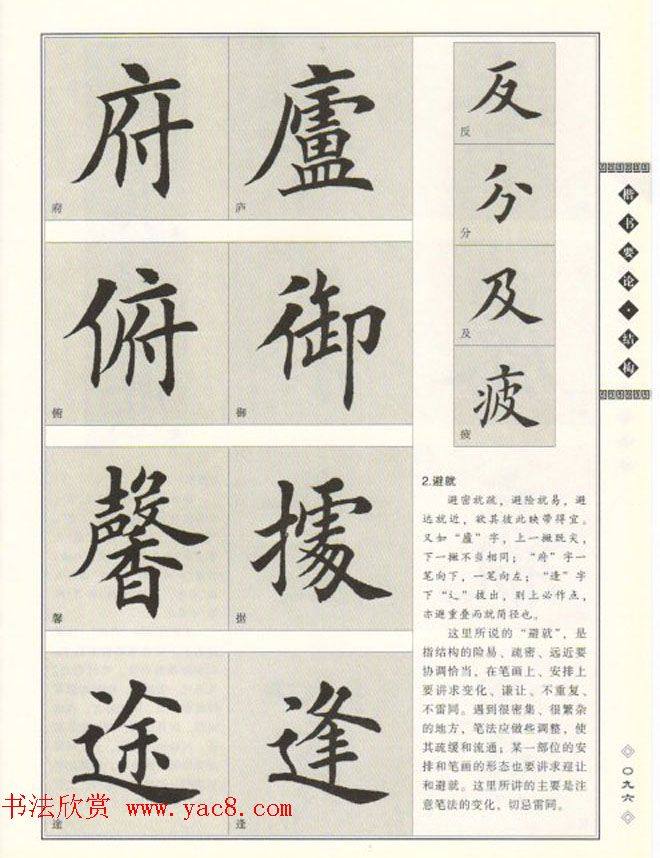 府
廬
府
庐
俯
御
俯
御
馨
據
馨
据
途
逢
途
逢
反
反
分
分
及
及
疲
疲
2.避就
避密就疏，避险就易，避
远就近，欲其彼此映带得宜。
又如“廬”字，上一撇既尖，
下一撇不当相同；“府”字一
笔向下，一笔向左；“逢”字
下“辶”拔出，则上必作点，
亦避重叠而就简径也。
这里所说的“避就”，是
指结构的险易、疏密、远近要
协调恰当，在笔画上、安排上
要讲求变化、谦让、不重复、
不雷同。遇到很密集、很繁杂
的地方，笔法应做些调整，使
其疏缓和流通；某一部位的安
排和笔画的形态也要讲求迎让
和避就。这里所讲的主要是注
意笔法的变化，切忌雷同。
楷书要论·结构
〇九六
书法欣赏 www.yac8.com